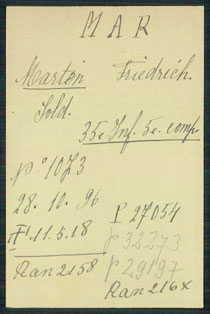 MAR
Martin Friedrich.
Sold.
35e Inf. 5e. comp
P° 1073
28. 10. 96
11.5.18
P 27054
P 32273
P 29197
Ran 2158
Ran 216x